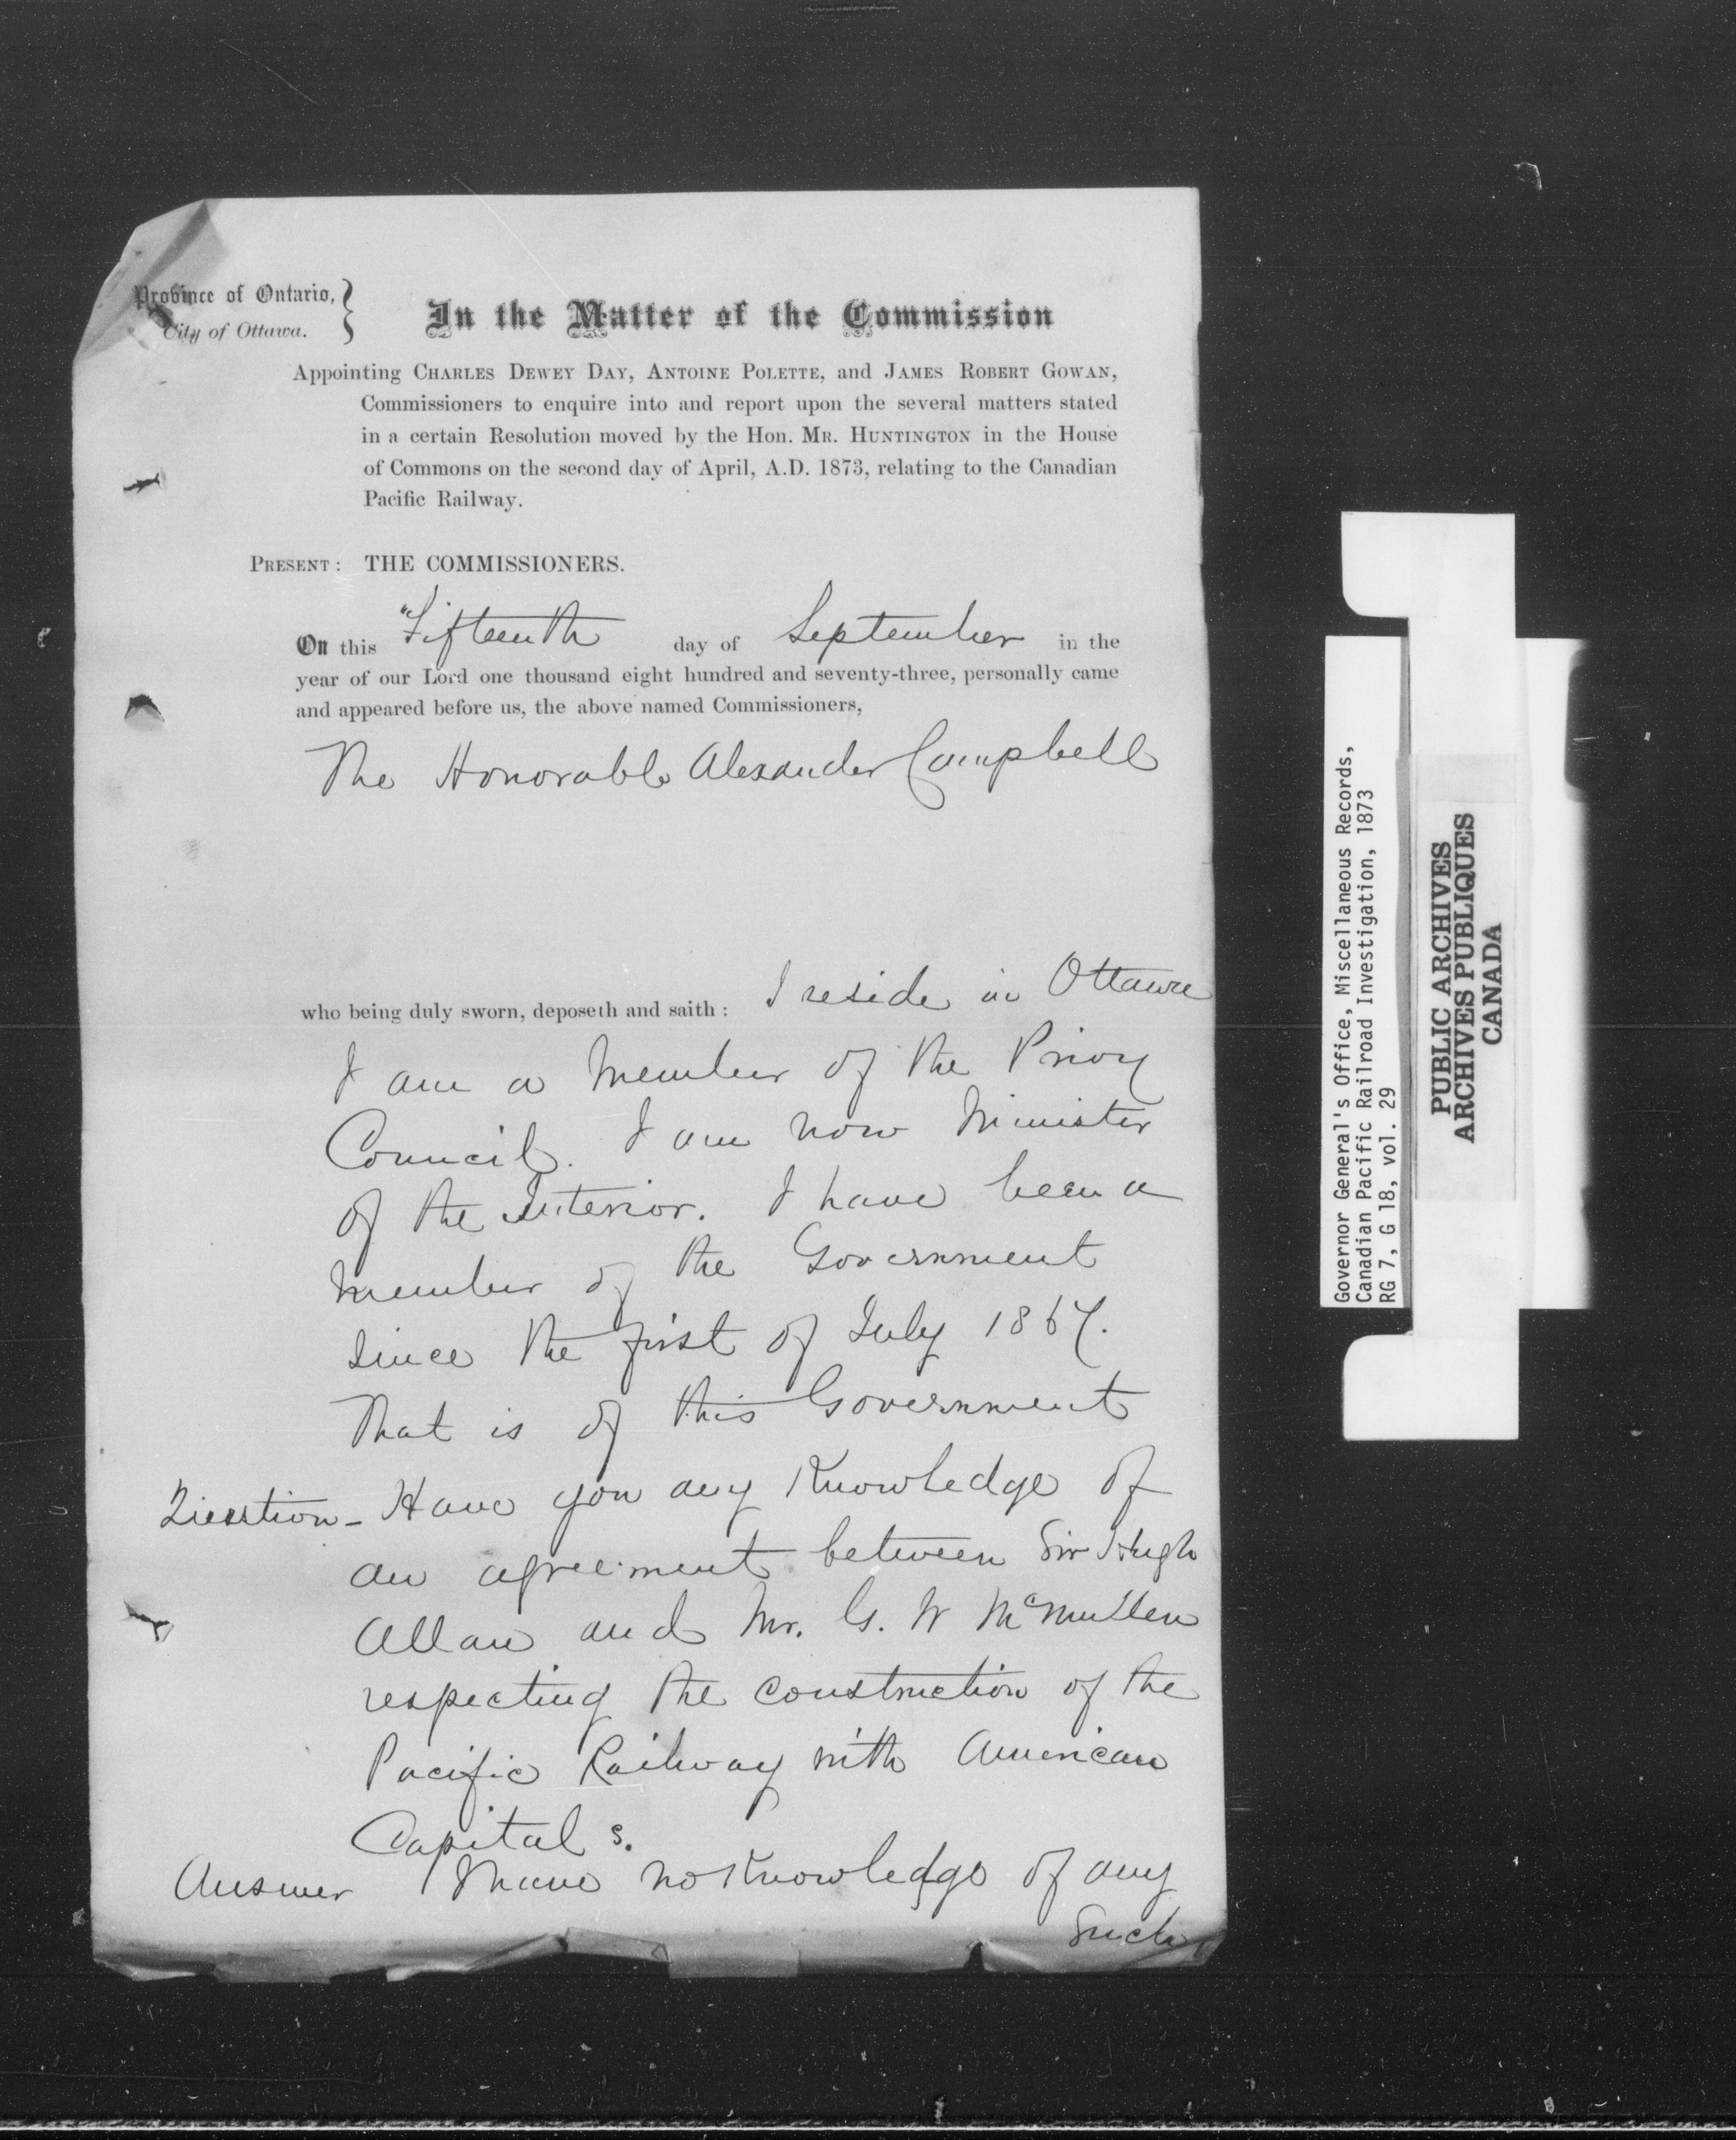 Province of Ontario, }
City of Ottawa.
In the Matter of the Commission
Appointing CHARLES DEWEY DAY, ANTOINE POLETTE, and JAMES ROBERT GOWAN,
Commissioners to enquire into and report upon the several matters stated
in a certain Resolution moved by the Hon. MR. HUNTINGTON in the House
of Commons on the second day of April, A.D. 1873, relating to the Canadian
Pacific Railway.
PRESENT: THE COMMISSIONERS.
On this Fifteenth day of September in the
year of our Lord one thousand eight hundred and seventy-three, personally came
and appeared before us, the above named Commissioners,
The Honorable Alexander Campbell
who being duly sworn, deposeth and saith: I reside in Ottawa
I am a member of the Privy
Council. I am now Minister
of the Interior. I have been a
member of the Government
since the first of July 1867.
That is of this Government
Question - Have you any Knowledge of
an agreement between Sir Hugh
Allan and Mr. G. W McMullen
respecting the construction of the
Pacific Railway with American
Capital s.
Answer I have no Knowledge of any
Such
Governor General's Office, Miscellaneous Records,
Canadian Pacific Railroad Investigation, 1873
RG 7, G 18, vol. 29
PUBLIC ARCHIVES
ARCHIVES PUBLIQUES
CANADA